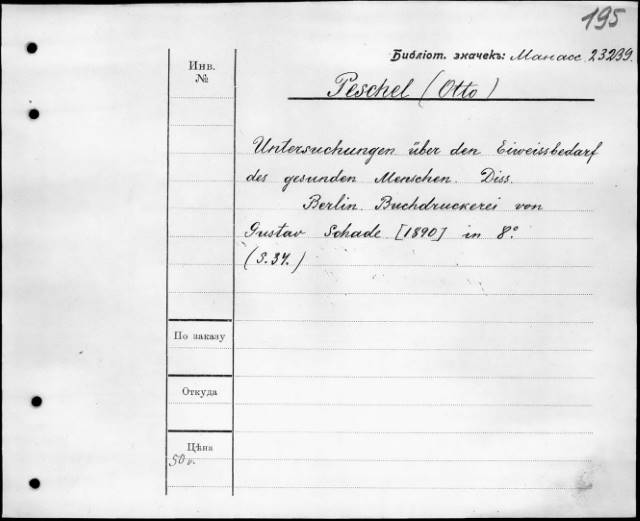 195
Библіот. значекъ: Манасс. 23239.
Инв.
№
Peschel (Otto)
Untersuchungen über den Eiweissbedarf
des gesunden Menschen. Diss.
Berlin. Buchdruckerei von
Gustav Schade [1890] in 8º.
(S. 37.)
По заказу
Откуда
Цѣна
50